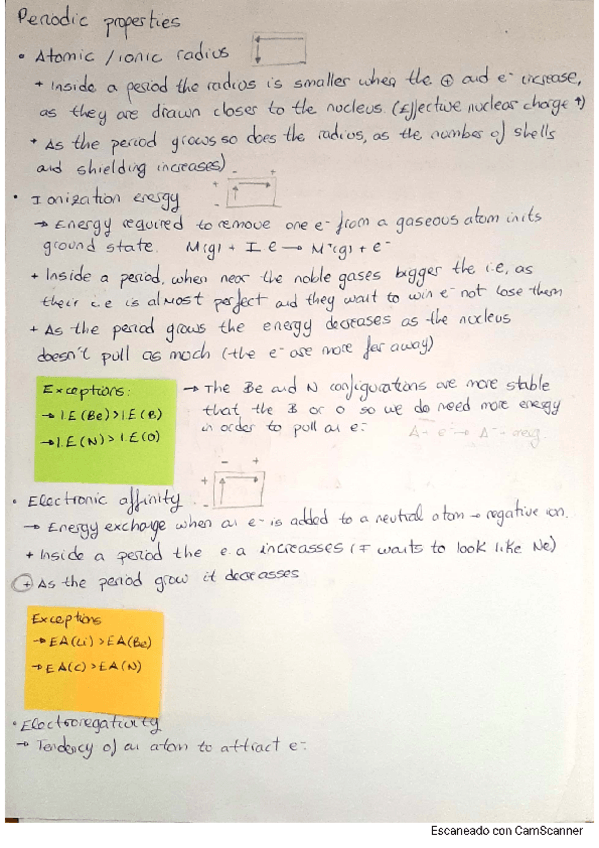 Periodic properties
• Atomic / ionic radius
+ Inside a period the radius is smaller when the ⊕ and e⁻ increase,
as they are drawn closer to the nucleus. (Effective nuclear charge ↑)
+ As the period grows so does the radius, as the number of shells
and shielding increases)
• Ionization energy
- +
+
-
→ Energy required to remove one e⁻ from a gaseous atom in its
ground state. M(g) + I e → M⁺(g) + e⁻
+ Inside a period, when near the noble gases bigger the i.e, as
their i.e is almost perfect and they want to win e⁻ not lose them
+ As the period grows the energy decreases as the nucleus
doesn't pull as much (the e⁻ are more far away)
Exceptions:
→ I.E(Be) > I.E(B)
→ I.E(N) > I.E(O)
→ The Be and N configurations are more stable
that the B or O so we do need more energy
in order to pull an e⁻.
A + e⁻ → A⁻
- +
+
-
• Electronic affinity
→ Energy exchange when an e⁻ is added to a neutral atom → negative ion.
+ Inside a period the e.a increasses (F wants to look like Ne)
+ As the period grow it decreasses
Exceptions
→ EA(Li) > EA(Be)
→ EA(C) > EA(N)
• Electronegativity
→ Tendency of an atom to attract e⁻.
Escaneado con CamScanner